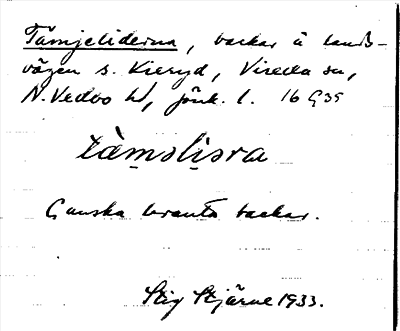 Tämjeliderna, backar å lands-
vägen s. Kieryd, Vireda sn,
N. Vedbo hd, Jönk. l. 16 G 35
tàmslisra
Ganska branta backar.
Stig Stjärne 1933.